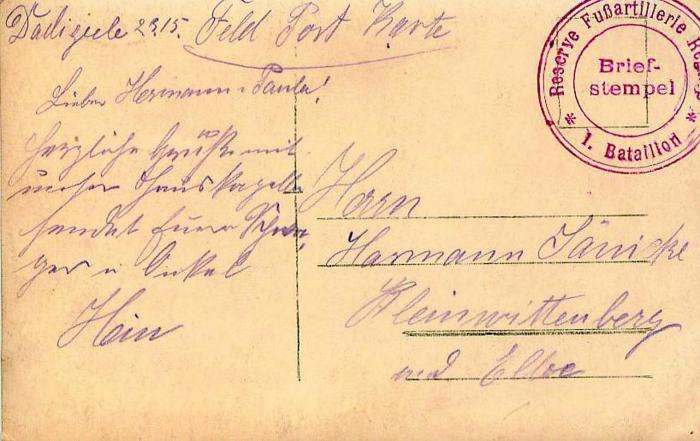 Dadizeele 2.9.15. Feld Post Karte
Lieber Hermann u Paula!
Herzliche Grüße mit
unser Hauskapelle
sendet Euer Schwa-
ger u Onkel
Hein
Reserve Fußartillerie
Brief-
stempel
* 1. Bataillon *
Herrn
Hermann Jänicke
Kleinwittenberg
a/d Elbe